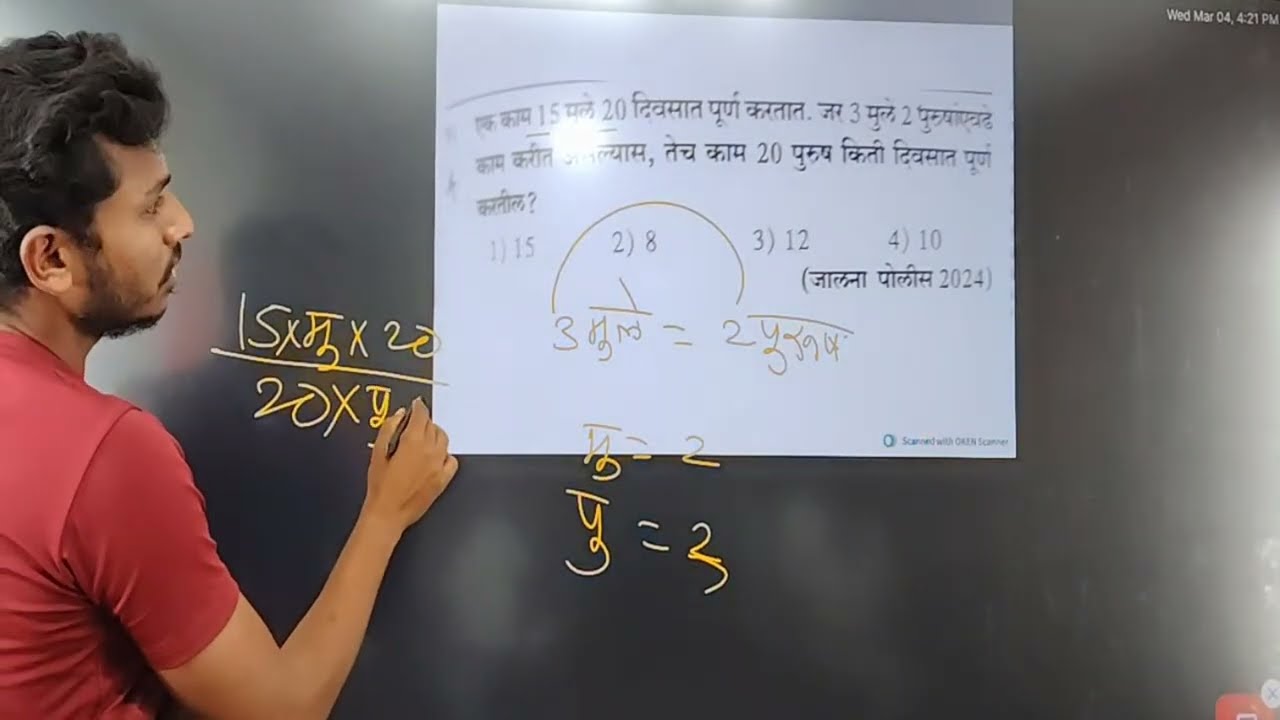 Wed Mar 04, 4:21 PM
एक काम 15 मुले 20 दिवसात पूर्ण करतात. जर 3 मुले 2 पुरुषांएवढे
काम करीत असल्यास, तेच काम 20 पुरुष किती दिवसात पूर्ण
करतील?
1) 15 2) 8 3) 12 4) 10
(जालना पोलीस 2024)
3 मुले = 2 पुरूष
15 x मु x 20
20 x पु
Scanned with OKEN Scanner
मु = 2
पु = 3